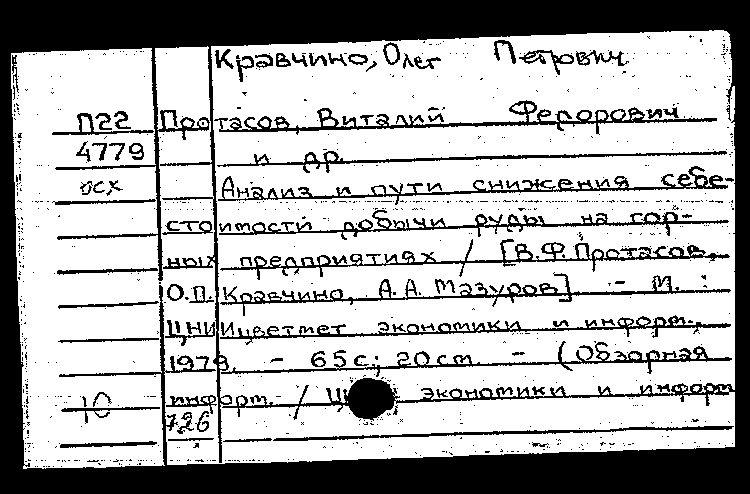 Кравчино, Олег Петрович
П22 Протасов, Виталий Федорович
4779 и др.
осх Анализ и пути снижения себе-
стоимости добычи руды на гор-
ных предприятиях / [В.Ф. Протасов,
О.П. Кравчино, А.А. Мазуров] - М. :
ЦНИИцветмет экономики и информ.,
1979. - 65 с.; 20 см. - (Обзорная
10 информ. / экономики и информ
726